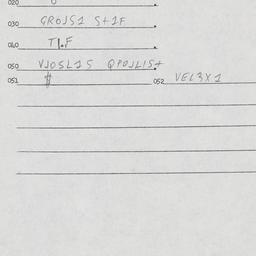 020
030 GROJS1 S+1F
040 T|.F
050 VJOSL1S QPOJLIS+
051 $ 052 VEL3X1